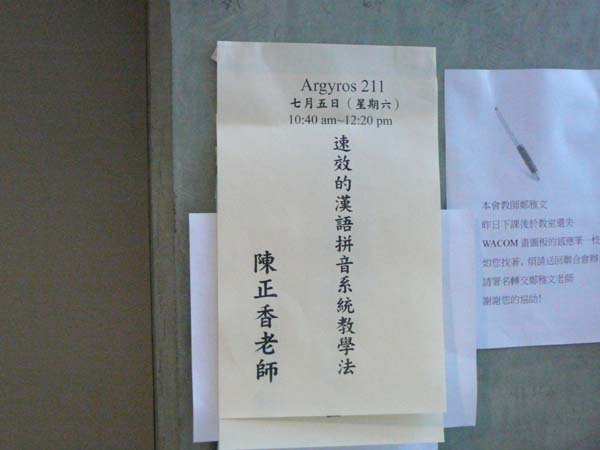 Argyros 211
七月五日（星期六）
10:40 am~12:20 pm
速效的漢語拼音系統教學法
陳正香老師
本會教師鄭雅文
昨日下課後於教室遺失
WACOM 畫圖板的感應筆一枝
如您找著, 煩請送回聯合會辦
請署名轉交鄭雅文老師
謝謝您的協助!